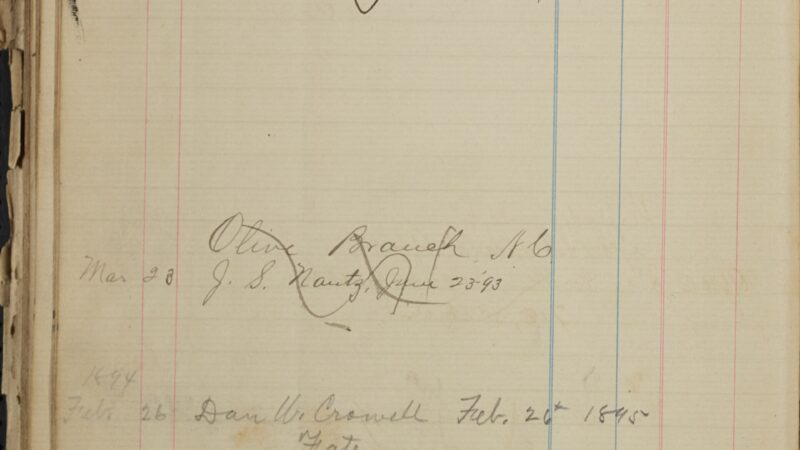 Olive Branch N C
Mar 23 J. S. Nantz, June 23 '93
1894
Feb. 26 Dan W. Crowell Feb. 26 1895